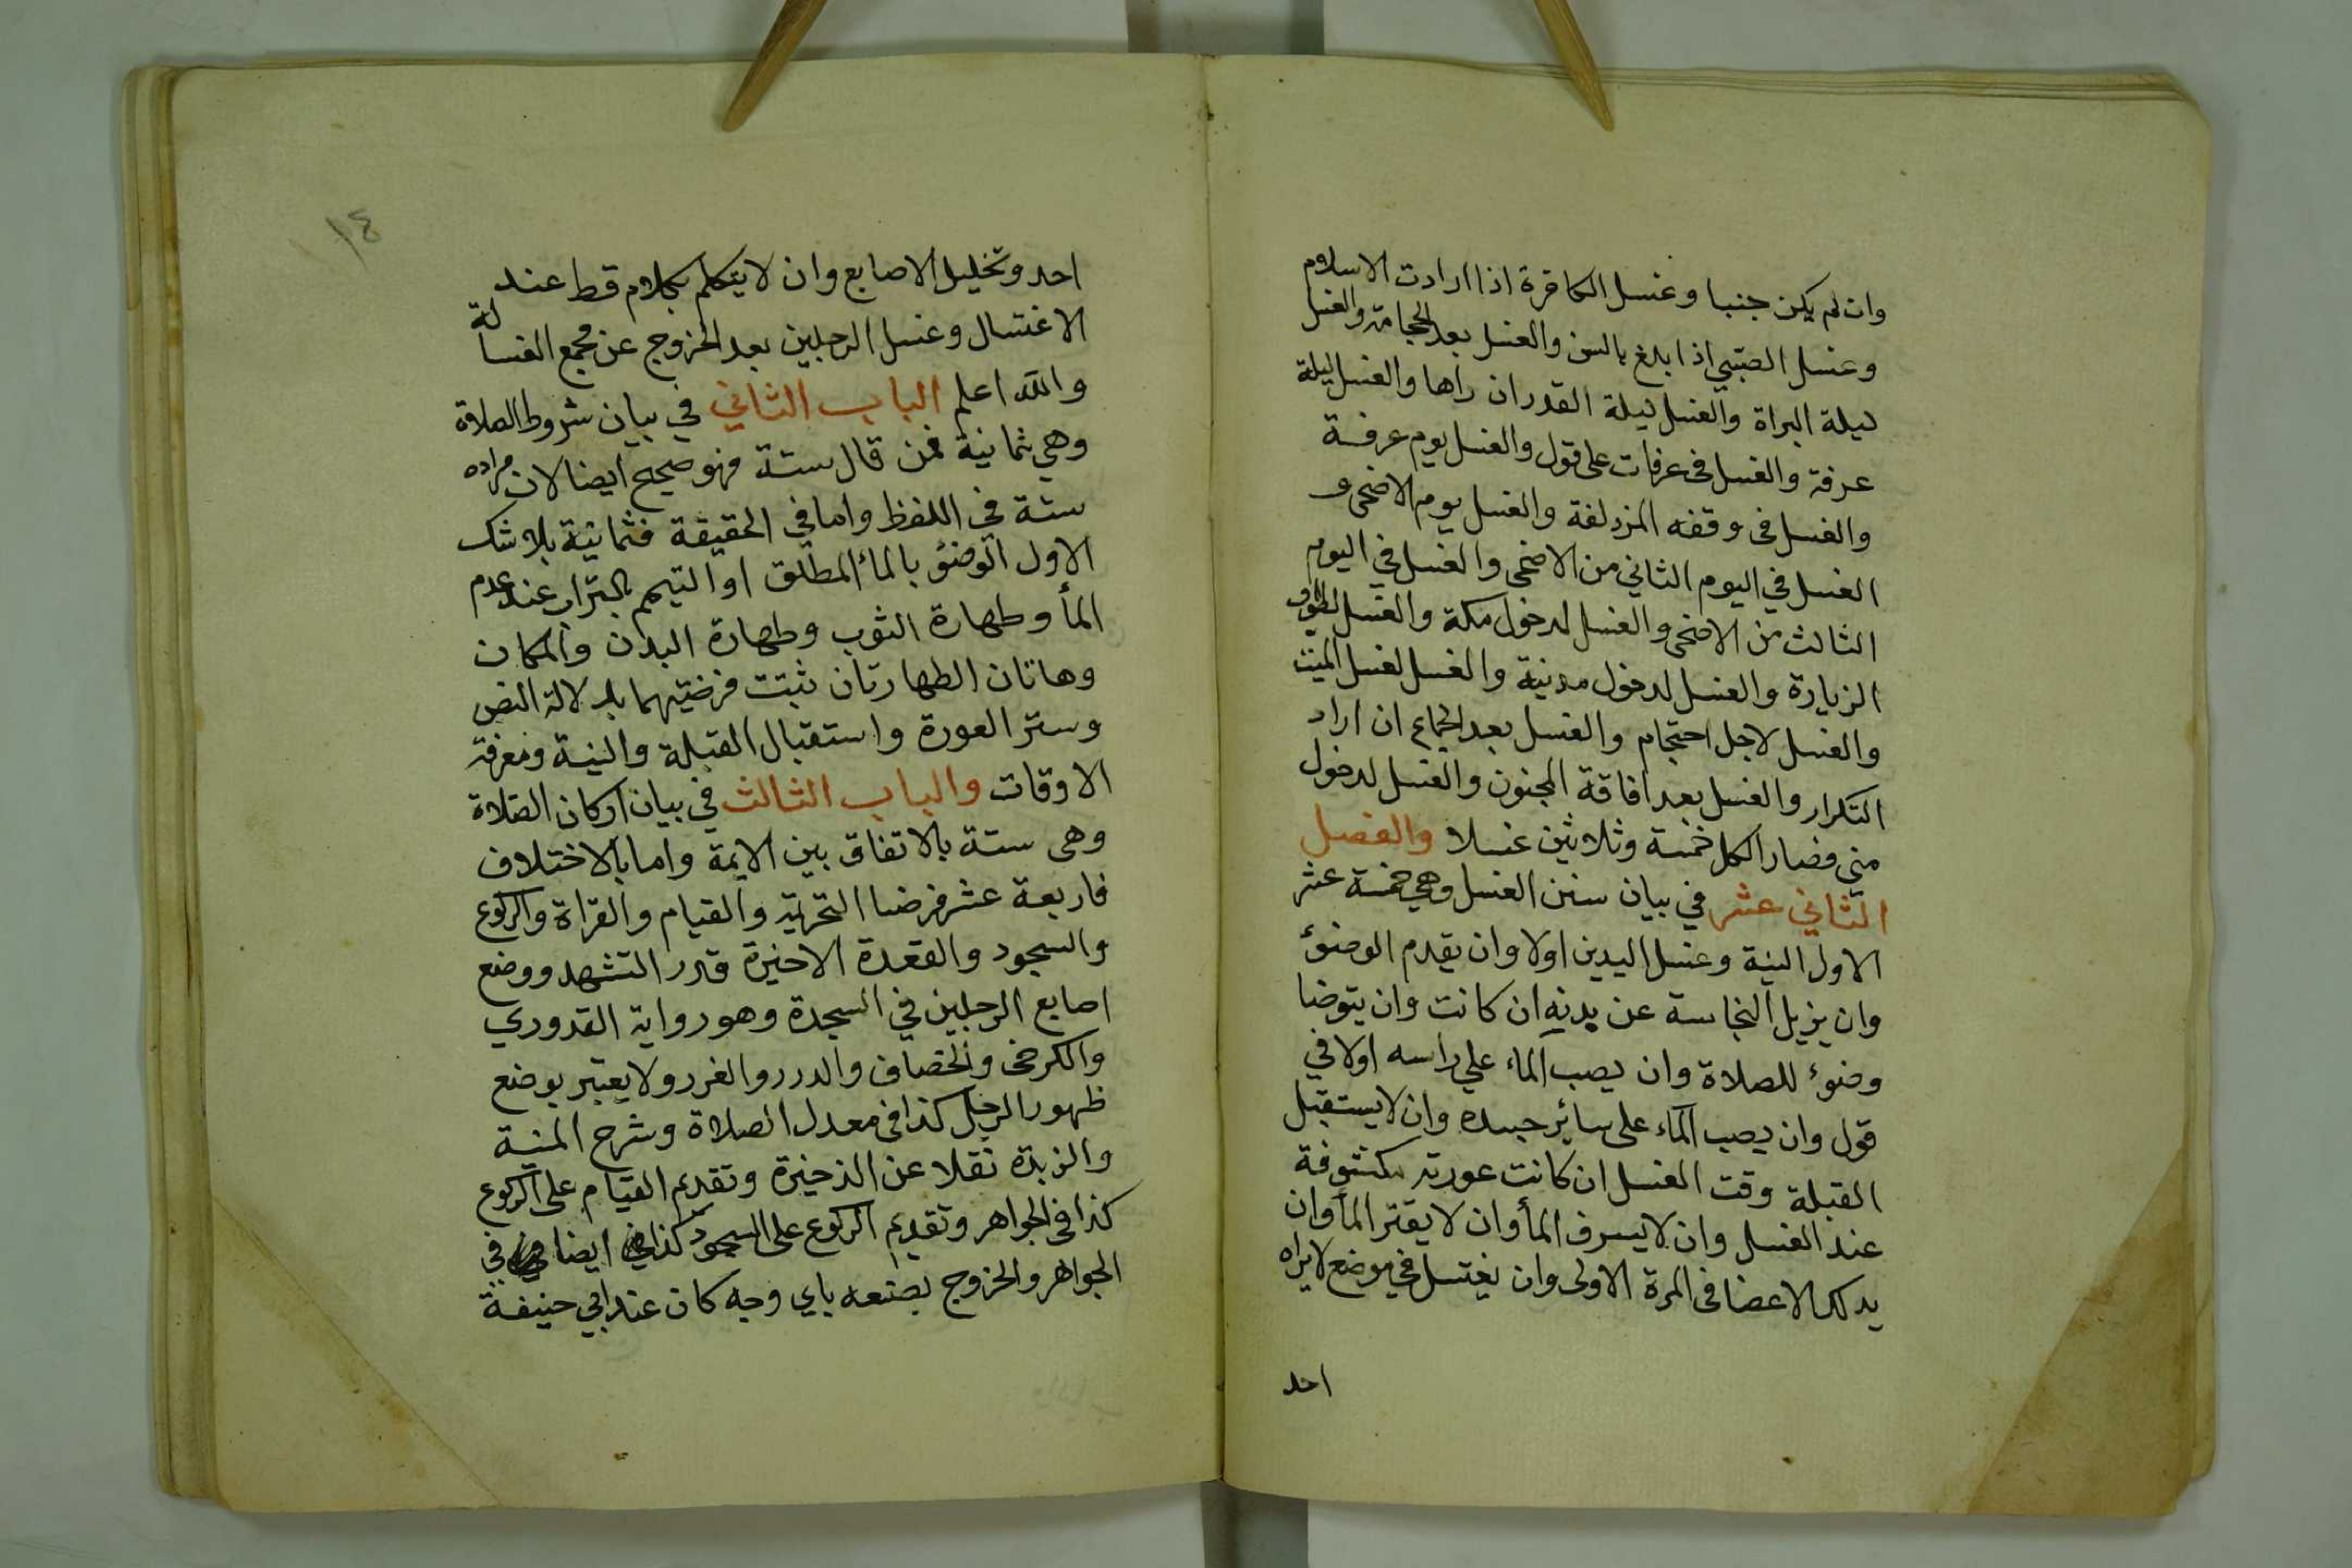 وان لم يكن جنبا وغسل الكافرة اذا ارادت الاسلام
وغسل الصبي اذا بلغ بالسن والغسل بعد الحجامة والغسل
ليلة البراة والغسل ليلة القدر ان راها والغسل ليلة
عرفة والغسل فى عرفات على قول والغسل يوم عرفة
والغسل فى وقفه المزدلفة والغسل يوم الاضحى و
الغسل في اليوم الثاني من الاضحى والغسل في اليوم
الثالث من الاضحى والغسل لدخول مكة والغسل لطواف
الزيارة والغسل لدخول مدنية والغسل لغسل الميت
والغسل لاجل احتجام والغسل بعد الجماع ان اراد
التكرار والغسل بعد افاقة المجنون والغسل لدخول
منى فصار الكل خمسة وثلاثين غسلا والفصل
الثاني عشر في بيان سنن الغسل وهي خمسة عشر
الاول النية وغسل اليدين اولا وان يقدم الوضوء
وان يزيل النجاسة عن بدنه ان كانت وان يتوضا
وضوء للصلاة وان يصب الماء علي راسه اولا في
قول وان يصب الماء على سائر جسده وان لا يستقبل
القبلة وقت الغسل ان كانت عورته مكشوفة
عند الغسل وان لا يسرف الماء وان لا يقتر الماء وان
يدلك الاعضا فى المرة الاولى وان يغتسل في موضع لا يراه
احد
١٤
احد وتخليل الاصابع وان لا يتكلم بكلام قط عند
الاغتسال وغسل الرجلين بعد الخروج عن مجمع الغسالة
والله اعلم الباب الثاني في بيان شروط الصلاة
وهي ثمانية فمن قال ستة فهو صحيح ايضا لان مراده
ستة في اللفظ واما في الحقيقة فثمانية بلا شك
الاول الوضوء بالماء المطلق او التيمم بالتراب عند عدم
الماء وطهارة الثوب وطهارة البدن والمكان
وهاتان الطهارتان ثبتت فرضيتهما بدلالة النص
وستر العورة واستقبال القبلة والنية ومعرفة
الاوقات والباب الثالث في بيان اركان الصلاة
وهى ستة بالاتفاق بين الايمة واما بالاختلاف
فاربعة عشر فرضا التحريمة والقيام والقراة والركوع
والسجود والقعدة الاخيرة قدر التشهد ووضع
اصابع الرجلين في السجدة وهو رواية القدوري
والكرخى والخصاف والدرر والغرر ولا يعتبر بوضع
ظهور الرجل كذا فى معدل الصلاة وشرح المنية
والزبدة نقلا عن الذخيرة وتقديم القيام على الركوع
كذا فى الجواهر وتقديم الركوع على السجود كذا في ايضا في
الجواهر والخروج بصنعه باي وجه كان عند ابي حنيفة